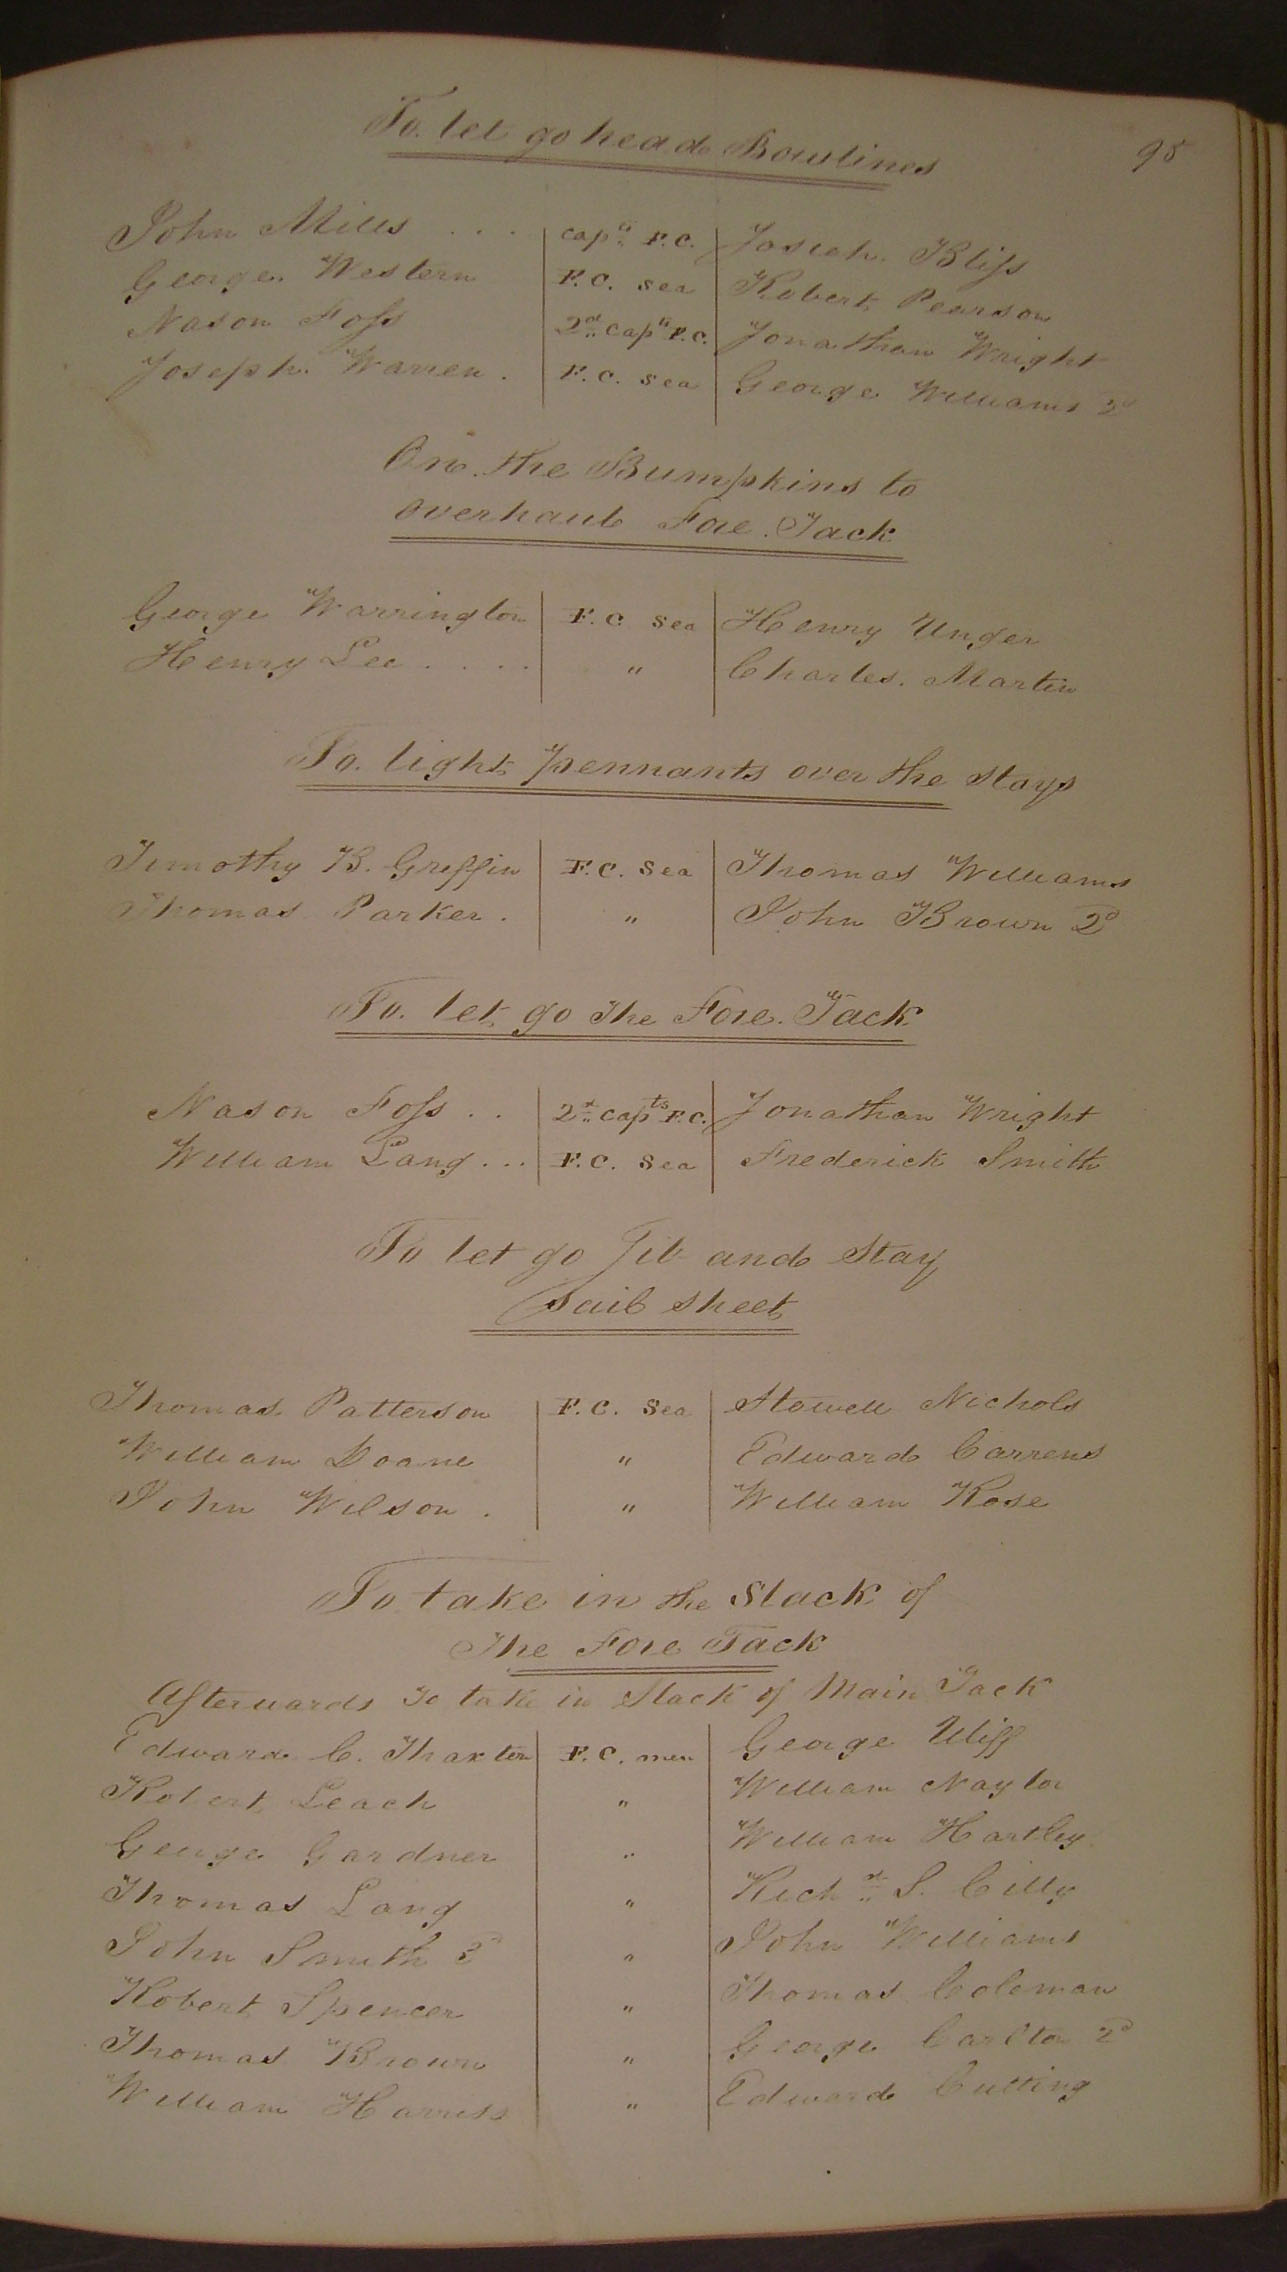 95
To let go head Bowlines
John Mills . . . capts F.C. Josieh Bliss
George Western F.C. Sea Robert Pearson
Nason Foss 2d capts F.C. Jonathan Wright
Joseph Warren . F.C. Sea George Williams 2d
On the Bumpkins to
overhaul Fore Tack
George Warrington F.C. Sea Henry Unger
Henry Lee . . . . " Charles Martin
To light pennants over the stays
Timothy B. Griffin F.C. Sea Thomas Williams
Thomas Parker . " John Brown 2d
To let go the Fore Tack
Nason Foss . . 2d capts F.C. Jonathan Wright
William Lang . . . F.C. Sea Frederick Smith
To let go Jib and Stay
Sail sheet
Thomas Patterson F.C. Sea Stowell Nichols
William Doane " Edward Carrens
John Wilson . " William Rose
To take in the Slack of
The Fore Tack
Afterwards To take in Slack of Main Tack
Edward C. Thaxton F.C. men George Uliff
Robert Leach " William Naylor
George Gardner " William Hartley
Thomas Lang " Richd S. Cilly
John Smith 3d " John Williams
Robert Spencer " Thomas Coleman
Thomas Brown " George Carlton 2d
William Harriss " Edward Cutting